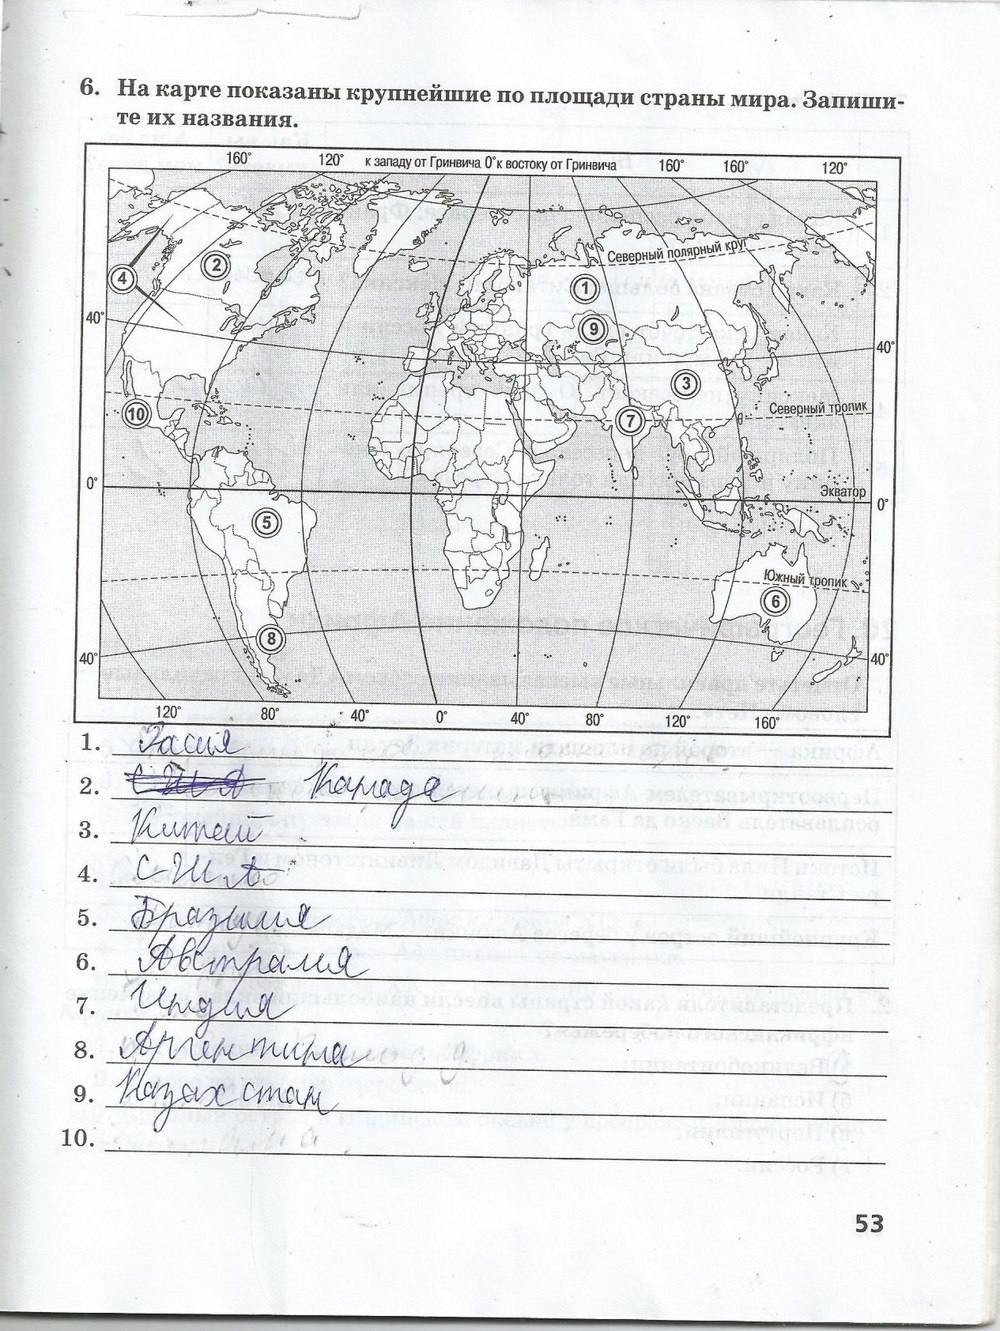 6. На карте показаны крупнейшие по площади страны мира. Запиши-
те их названия.
160° 120° к западу от Гринвича 0° к востоку от Гринвича 160° 160° 120°
Северный полярный круг
2
4
1
40°
9
40°
3
10
Северный тропик
7
0°
Экватор
0°
5
Южный тропик
6
8
40°
40°
120° 80° 40° 0° 40° 80° 120° 160°
1. Расия
2. США Канада
3. Китай
4. США
5. Бразилия
6. Австралия
7. Индия
8. Аргентина
9. Казахстан
10.
53